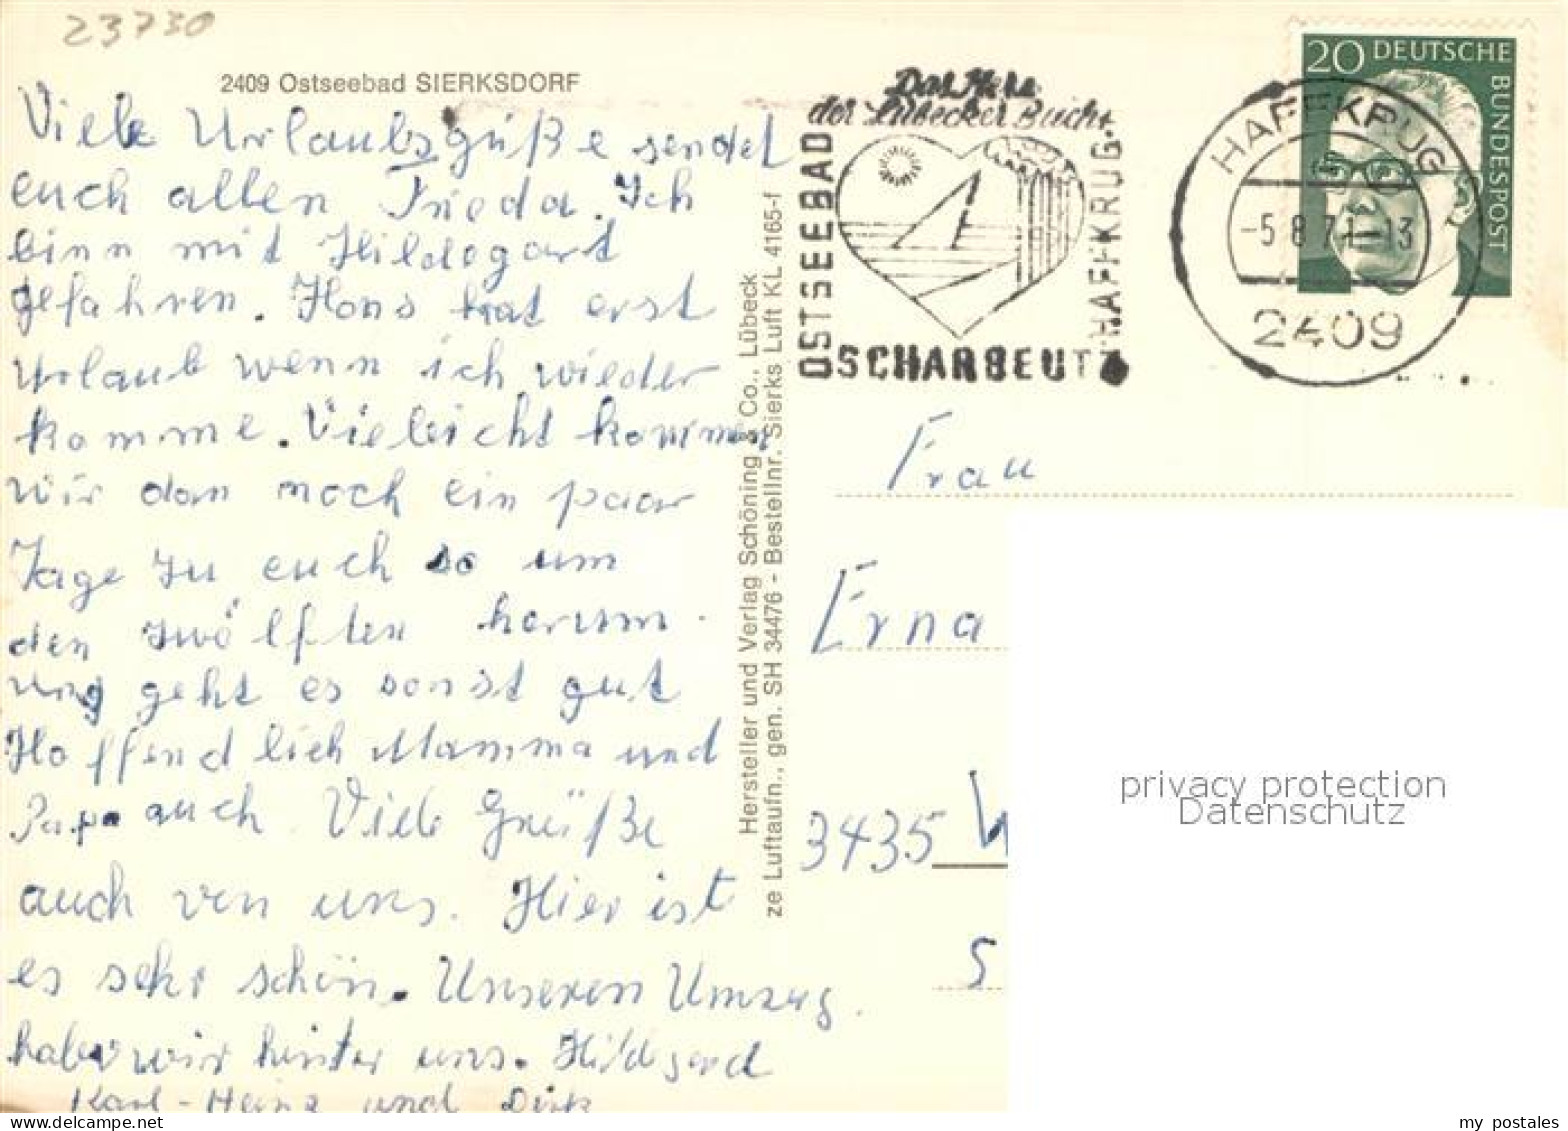 23730
2409 Ostseebad SIERKSDORF
Viele Urlaubsgüße sendet
euch allen Frieda. Ich
binn mit Hildegard
gefahren. Hans hat erst
Urlaub wenn ich wieder
komme. Vieleicht kommen
wir dan noch ein paar
Tage zu euch so um
den zwölften herum.
uns geht es sonst gut
Hoffend lich Mamma und
Papa auch Viele Grüße
auch von uns. Hier ist
es sehr schön. Unseren Umzug
haben wir hinter uns. Hildegard
Karl-Heinz und Dirk
Hersteller und Verlag Schöning & Co., Lübeck
ze Luftaufn., gen. SH 34476 - Bestellnr. Sierks Luft KL 4165-f
Das Herz
der Lübecker Bucht
OSTSEEBAD
SCHARBEUTZ
HAFFKRUG
20 DEUTSCHE
BUNDESPOST
HAFFKRUG
-5.8.71-13
2409
Frau
Erna
3435 W
S
privacy protection
Datenschutz
delcampe.net
my_postales